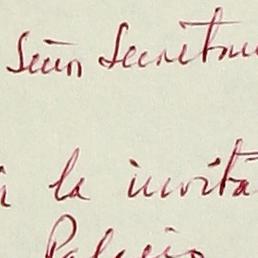 Señor Secretar
la invita
Palacio